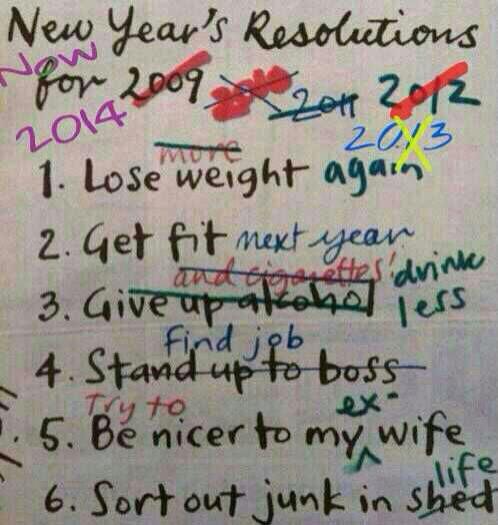 New Year's Resolutions
Now for 2009 2010 2011 2012
2014 2013
more
1. Lose weight again
2. Get fit next year
and cigarettes' drink
3. Give up alcohol less
Find job
4. Stand up to boss
Try to ex-
5. Be nicer to my wife
life
6. Sort out junk in shed